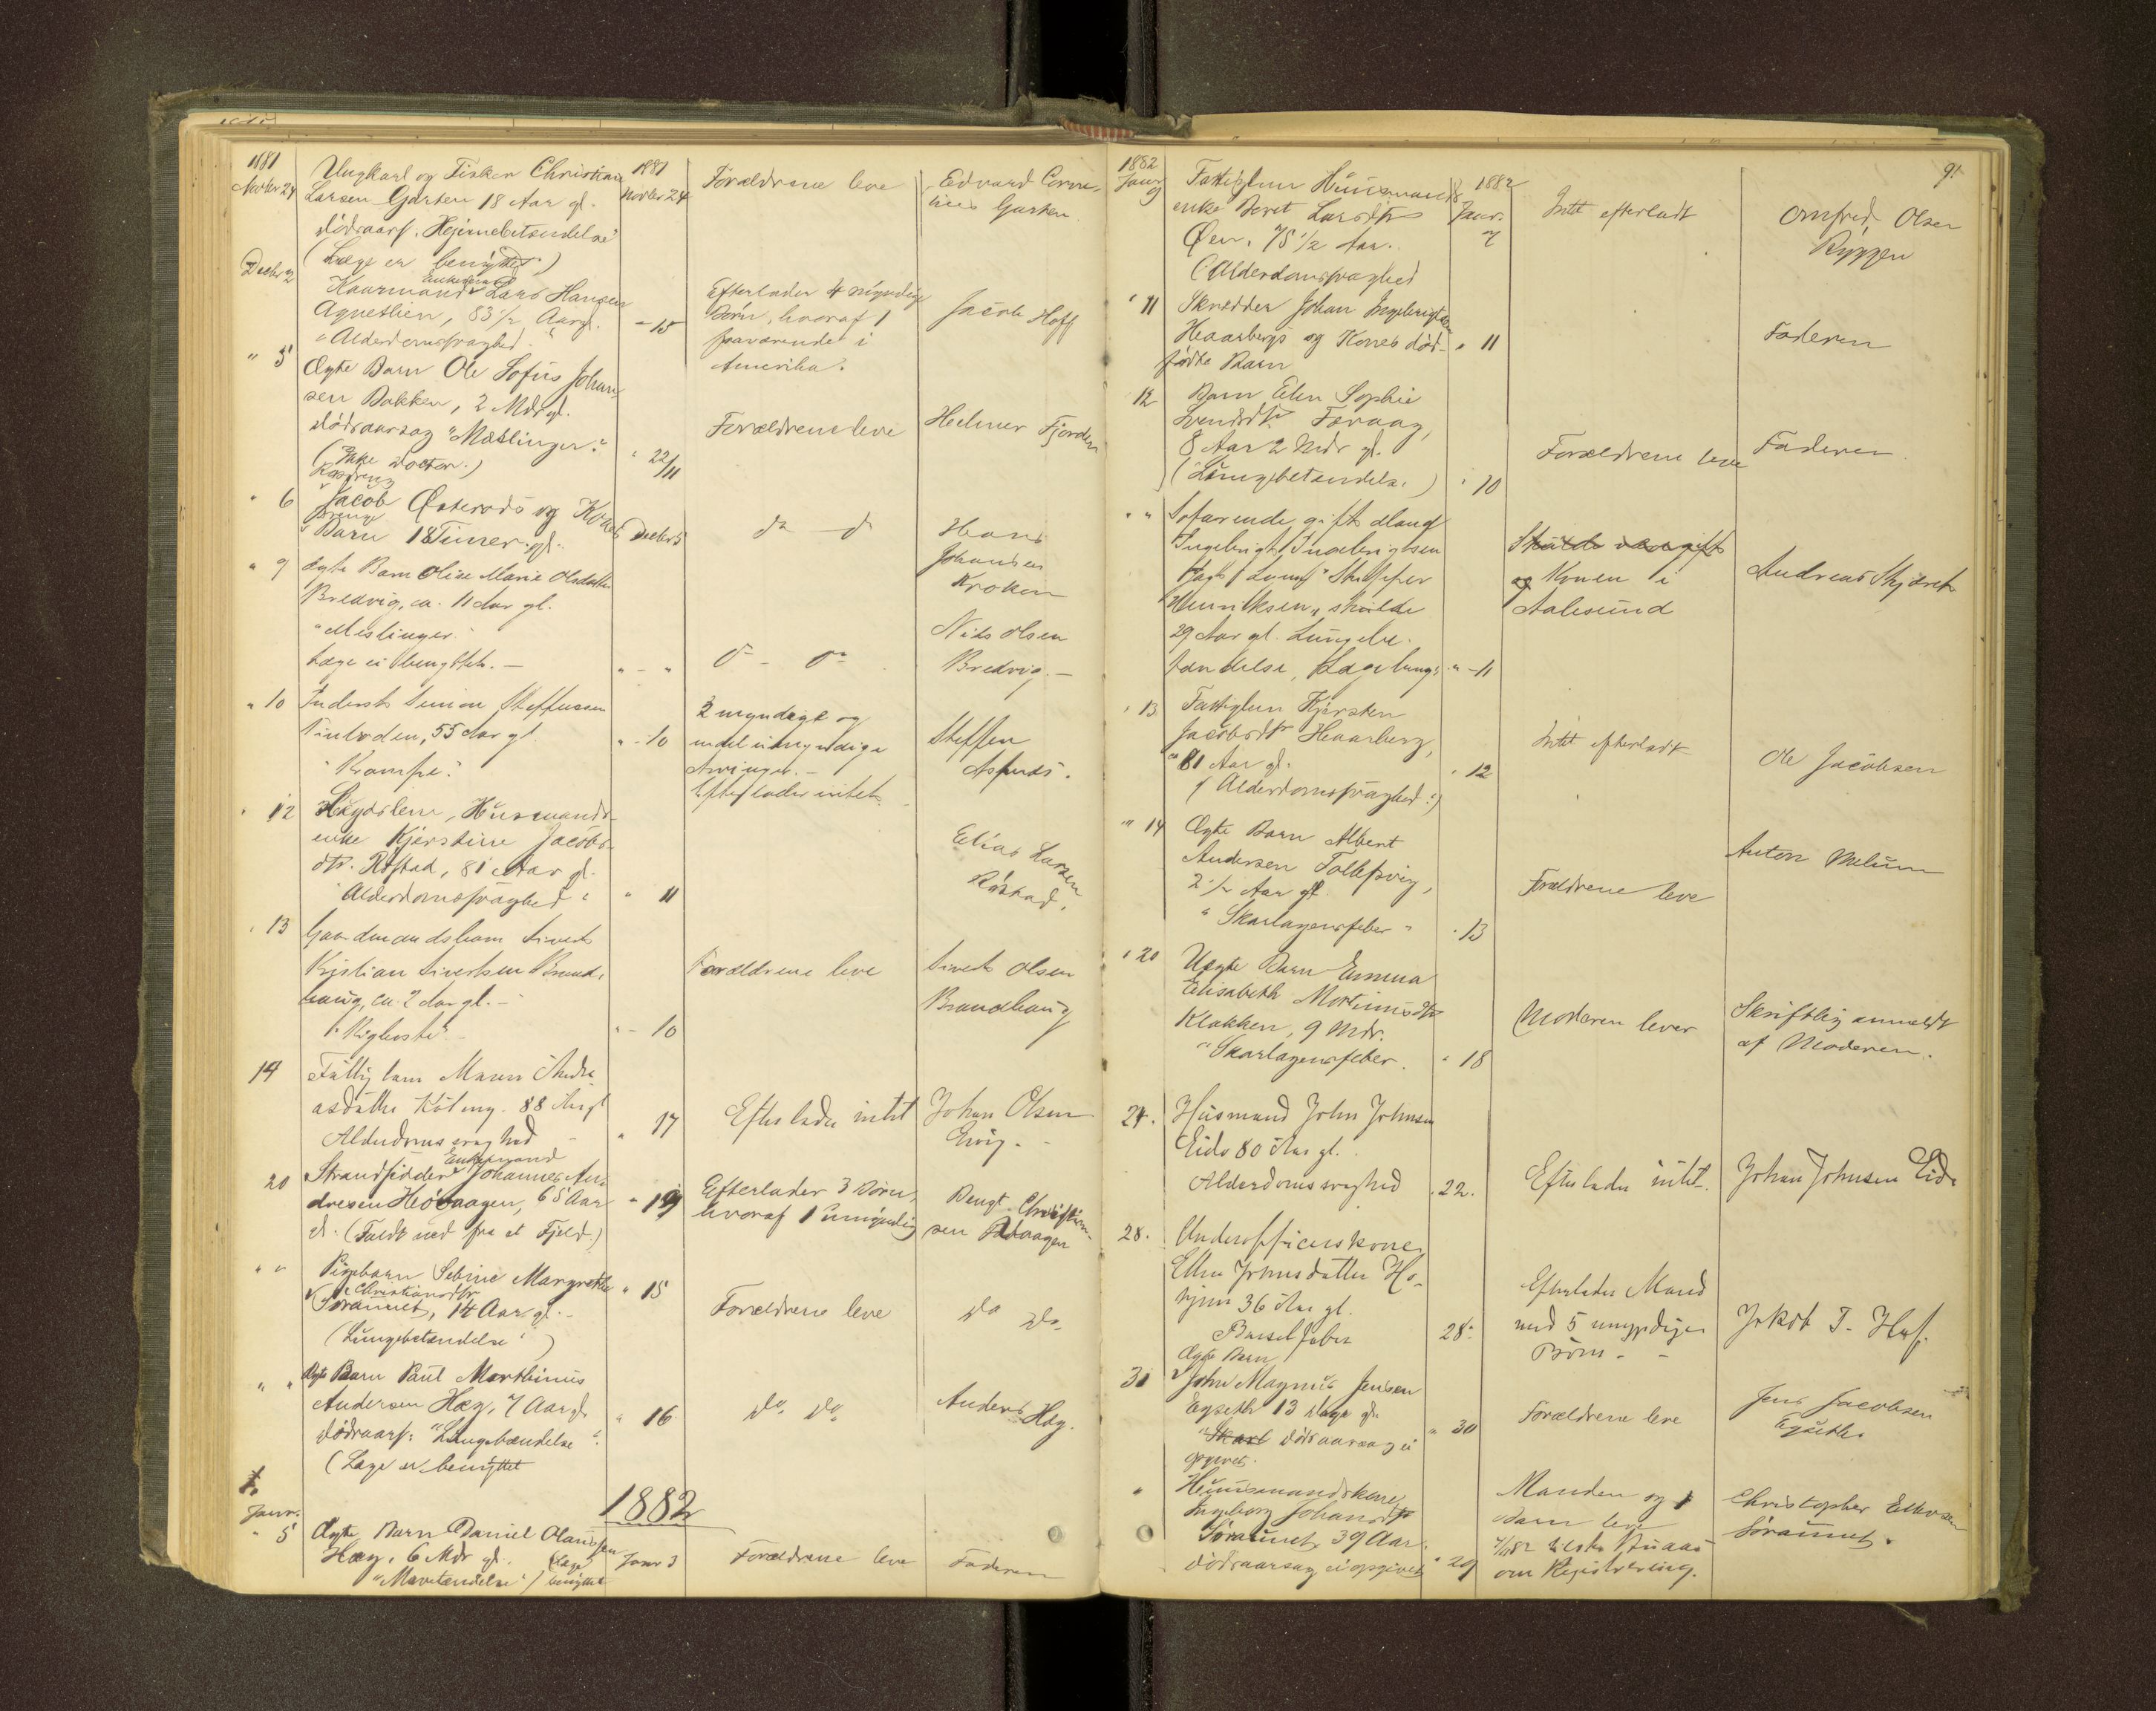 1881
Novber 24
Ungkarl og Fisker Christian
Larsen Garten 18 Aar gl.
dødsaars. Hjernebetændelse
(Læge er benyttet)
1881
Novber 24
Forældrene leve
Edvard Corne-
lius Garten
Decbr 2
Enkemand
Kaarmand Lars Hansen
Agnetlien, 83 1/2 Aar gl.
"Alderdomssvaghed"
" 15
Efterlader 4 myndige
Børn, hvoraf 1
fraværende i
Amerika.
Jacob Hoff
" 5
Ægte Barn Ole Sofus Johan
sen Bakken, 2 Mdr gl.
dødsaarsag "Mæslinger."
(Ikke Doctor.)
" 22/11
Forældrene leve
Helmer Fjorden
" 6
Jacob Østeraas og Kones
Drenge
Barn 18 Timer gl.
Decbr 5
do do
Hans
Johansen
Kroken
" 9
Ægte Barn Oline Marie Olsdatter
Bredvig, ca. 11 Aar gl.
"Meslinger."
Læge ei benyttet. -
" - "
do - do
Nils Olsen
Bredvig. -
" 10
Inderst Simon Steffensen
55 Aar gl.
"Krampe."
" - 10
2 myndige og
endel umyndige
Arvinger. -
Efterlader intet
Steffen
" 12
Huusmands
enke Kjerstine Jacobs-
dtr. Røstad, 81 Aar gl.
"Alderdomssvaghed"
" 11
Elias Larsen
Røstad.
" 13
Gaardmandsbarn Sivert
Kristian Sivertsen Brand-
haug, ca. 2 Aar gl. -
"Kighoste" -
" - 10
Forældrene leve
Sivert Olsen
Brandhaug
14
Fattiglem Maren Andre
asdatter 88 Aar gl
Alderdomssvaghed -
" 17
Efterlader intet
Johan Olsen
Ervig. -
20
Enkemand
Strandsidder Johannes An-
dresen Hovaagen, 65 Aar
gl. (Faldt ned fra et Fjeld.)
" 19
Efterlader 3 Børn,
hvoraf 1 umyndig
Bengt Christian-
sen
" "
Pigebarn Sebine Margrethe
Christiansdtr
Søraunet, 14 Aar gl. -
(Lungebetændelse)
" 15
Forældrene leve
do do
" "
Ægte Barn Paul Marthinus
Andersen Hæg, 7 Aar gl.
dødsaars: "Lungebændelse".
(Læge er benyttet
" 16
do do
Anders Hæg.
1882
Janr.
" 5
Ægte Barn Daniel Olaussen
Hæg, 6 Mdr gl. (Læge
"Mavetændelse") benyttet
Janr 3
Forældrene leve
Faderen
91
1882
Janr
9
Fattiglem Huusmands
enke Beret Larsdtr
Øen, 75 1/2 Aar.
(Alderdomssvaghed
1882
Janr.
7
Intet efterladt
Arnfred Olsen
Ryggen
" 11
Skrædder Johan Ingebrigtsen
Haarbergs og Kones død-
fødte Barn
" 11
Faderen
12
Barn Elen Sophie
Svendsdtr. Faraag,
8 Aar 2 Mdr gl.
(Lungebetændelse.)
" 10
Forældrene leve
Faderen
" "
Sofarende gift Mand
Ingebrigt Ingebrigtsen
Henriksen,
29 Aar gl. Lungebe-
tændelse,
" - 11
og Konen i
Aalesund
Andreas
" 13
Fattiglem Kjersten
Jacobsdtr Haarberg,
81 Aar gl.
(Alderdomssvaghed.)
" 12
Intet efterladt
Ole Jacobsen
" 14
Ægte Barn Albert
Andersen Tollefsvig,
2 1/2 Aar gl.
"Skarlagensfeber"
" 13
Forældrene leve
Anton Melum
" 20
Uægte Barn Emma
Elisabeth Mortinusdtr
Klakken, 9 Mdr.
"Skarlagensfeber.
" 18
Moderen lever
Skriftlig anmeldt
af Moderen.
24.
Husmand John Johnsen
Eide 80 Aar gl.
Alderdomssvaghed
" 22.
Efterlader intet.
Johan Johnsen Eide
28.
Underofficerskone
Ellen Johnsdatter
36 Aar gl.
Barselfeber
28.
Efterlader Mand
med 5 umyndige
Børn. -
Jakob T. Hof.
31
Ægte Barn
John Magnus Jensen
Eyseth 13 Dage gl.
Skarl dødsaarsag ei
opgivet.
" 30
Forældrene leve
Jens Jacobsen
Eyseth.
"
Huusmandskone
Ingeborg Johansdtr
Søraunet 39 Aar.
dødsaarsag ei opgivet
" 29
Manden og 1
Barn leve
om Registrering.
Christopher Ellevsen
Søraunet.